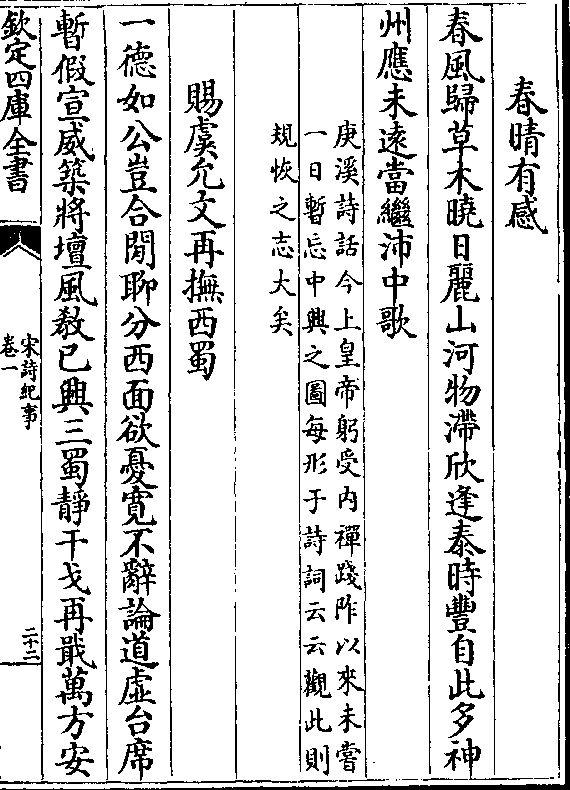 春晴有感
春風歸草木曉日麗山河物滯欣逢泰時豐自此多神
州應未遠當繼沛中歌
庚溪詩話今上皇帝躬受内禪踐阼以來未嘗
一日暫忘中興之圖每形于詩詞云云觀此則
規恢之志大矣
賜虞允文再撫西蜀
一德如公豈合閒聊分西面欲憂寛不辭論道虛台席
暫假宣威築將壇風敎已興三蜀靜干戈再戢萬方安
欽定四庫全書
宋詩紀事
卷一
二十二